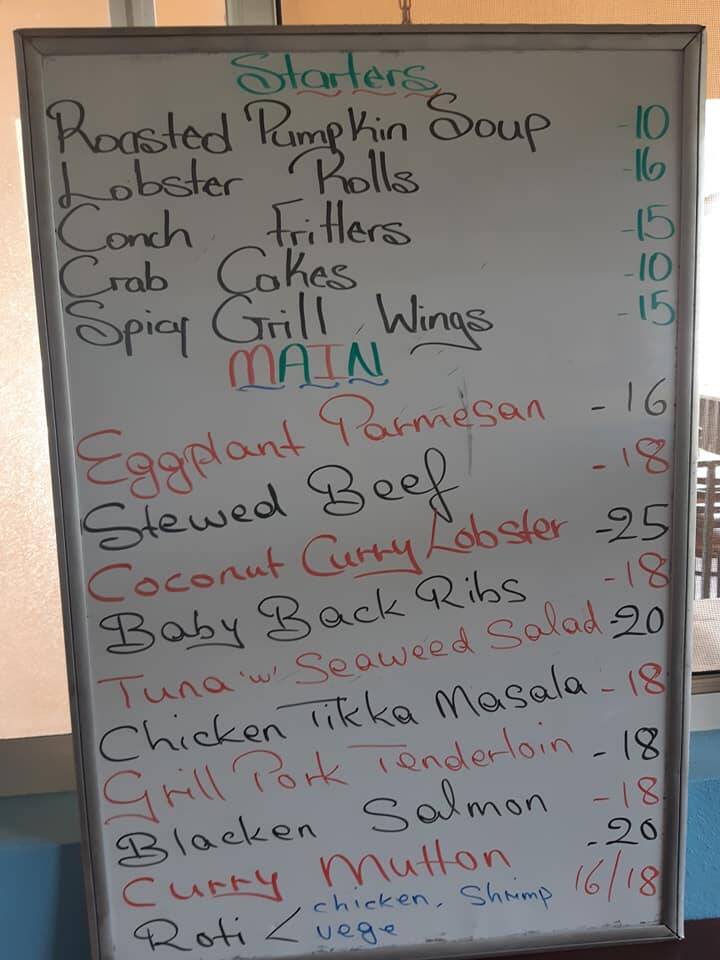 Starters
Roasted Pumpkin Soup -10
Lobster Rolls -16
Conch Fritters -15
Crab Cakes -10
Spicy Grill Wings -15
MAIN
Eggplant Parmesan - 16
Stewed Beef - 18
Coconut Curry Lobster -25
Baby Back Ribs -18
Tuna 'w' Seaweed Salad -20
Chicken Tikka Masala - 18
Grill Pork Tenderloin - 18
Blacken Salmon - 18
Curry Mutton - 20
Roti < chicken, Shrimp 16/18
vege